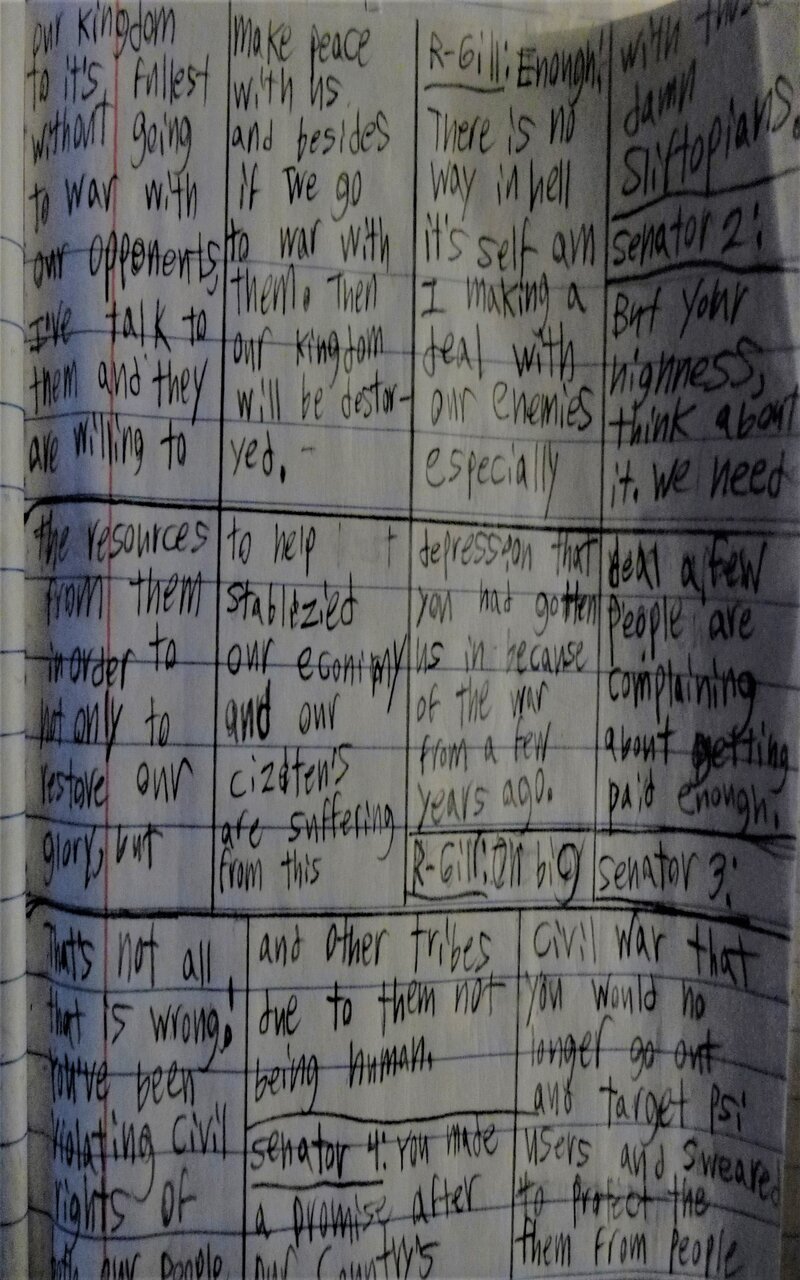 our kingdom
to it's fullest
without going
to war with
our opponents,
I've talk to
them and they
are willing to
make peace
with us
and besides
if we go
to war with
them. Then
our kingdom
will be destor-
yed.
R-Gill: Enough!
There is no
way in hell
it's self am
I making a
deal with
our enemies
especially
with
damn
Sliftopians.
senator 2:
But your
highness,
think about
it. We need
the resources
from them
in order to
not only to
restore our
glory, but
to help
stablizied
our economy
and our
cizdten's
are suffering
from this
depression that
you had gotten
us in because
of the war
from a few
years ago.
R-Gill: Oh big
deal a few
people are
complaining
about getting
paid enough.
senator 3:
That's not all
that is wrong!
You've been
violating civil
rights of
both our people
and other tribes
due to them not
being human.
senator 4: You made
a promise after
our country's
civil war that
you would no
longer go out
and target psi
users and sweared
to protect the
them from people